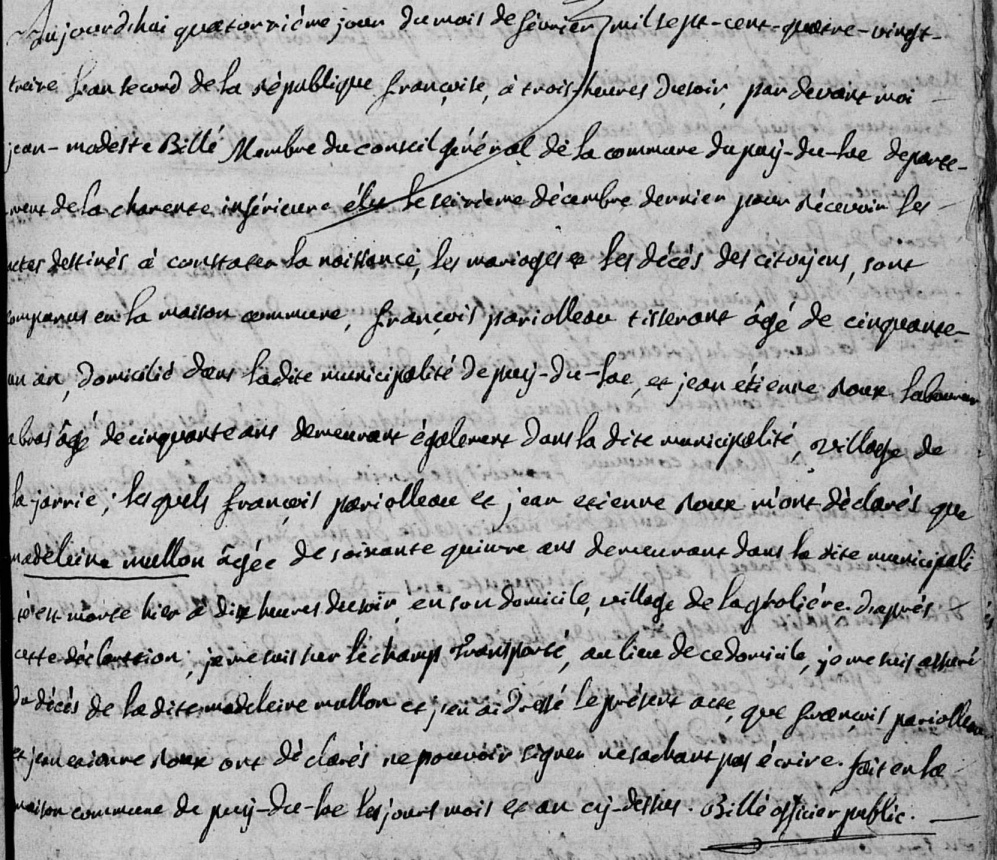 Aujourdhui quatorziéme jour du mois de février mil sept-cent-quatre-vingt-
treize l'an second de la république françoise, à trois heures du soir, par devant moi
jean-modeste Billé Membre du conseil général de la commune du puy-du-lac departe-
ment de la charente inférieure élu le seizieme décembre dernier pour recevoir les
actes destinés à constater la naissance, les mariages et les décés des citoyens, sont
comparus en la maison commune, françois pariolleau tisserant âgé de cinquante-
un an, domicilié dans la dite municipalité de puy-du-lac, et jean étienne roux laboureur
a bras âgé de cinquante ans demeurant également dans la dite municipalité, village de
la jarrie; les quels françois pariolleau et jean etienne roux m'ont déclarés que
madeleine mullon âgée de soixante quinze ans demeurant dans la dite municipali
té est morte hier à dix heures du soir, en son domicile, village de d'après
cette déclaration, je me suis sur le champ transporté, au lieu de ce domicile, je me suis assuré
du décés de la dite madeleine mullon et j'en ai dressé le présent acte, que françois pariolleau
et jean etienne roux ont déclarés ne pouvoir signer ne sachant pas écrire. fait en la
maison commune de puy-du-lac les jours mois et an cy-dessus. Billé officier public.